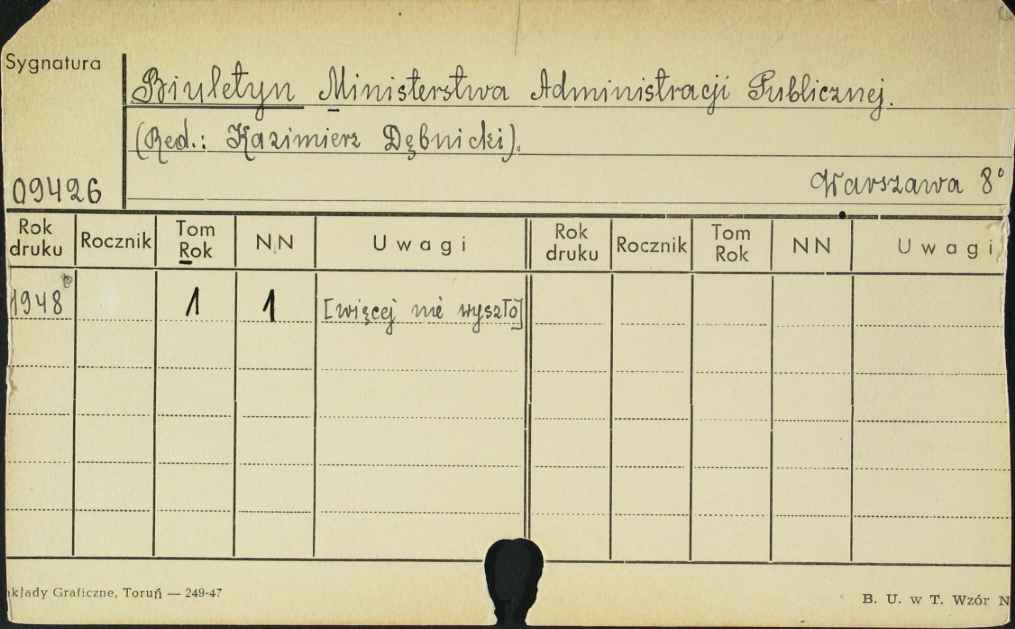 Sygnatura
Biuletyn Ministerstwa Administracji Publicznej.
(Red.: Kazimierz Dębnicki).
09426
Warszawa 8°
Rok druku Rocznik Tom Rok NN Uwagi Rok druku Rocznik Tom Rok NN Uwagi
1948 1 1 [więcej nie wyszło]
kłady Graficzne, Toruń — 249-47
B. U. w T. Wzór N